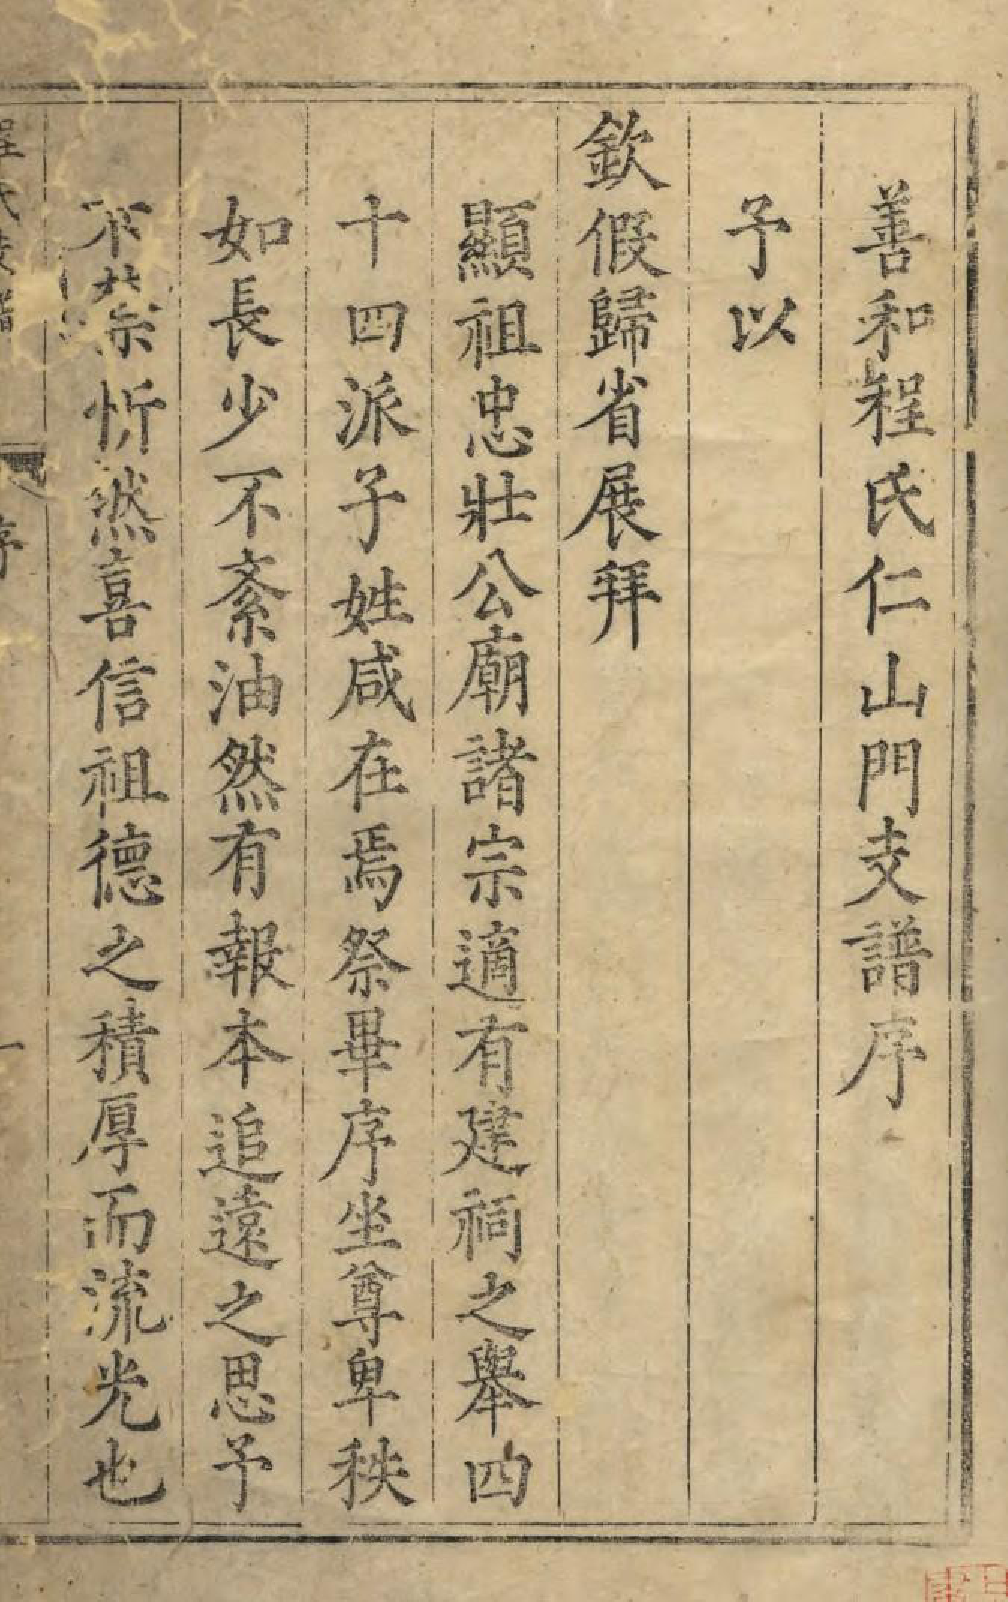 善和程氏仁山門支譜序
予以
欽假歸省展拜
顯祖忠壯公廟諸宗適有建祠之舉四
十四派子姓咸在焉祭畢序坐尊卑秩
如長少不紊油然有報本追遠之思予
不禁忻然喜信祖德之積厚而流光也
程氏支譜
序
一